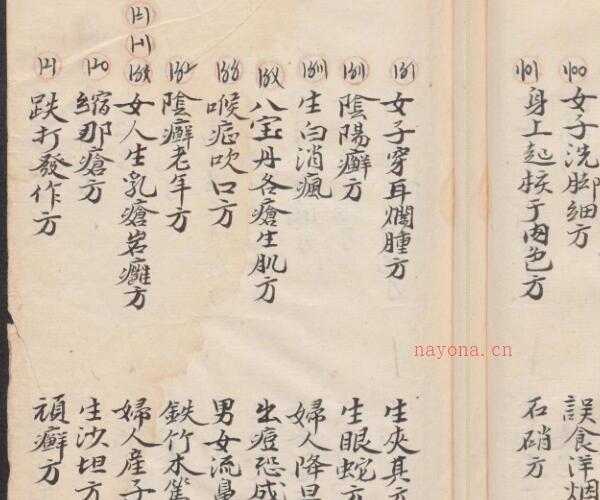 女子洗脚細方
身上起核于肉色方
女子穿耳爛腫方
陰陽癬方
生白消瘋
八宝丹各瘡生肌方
喉症吹口方
陰癬老年方
女人生乳瘡岩癰方
縮那瘡方
跌打發作方
誤食洋烟
石硝方
生夾其方
生眼蛇方
婦人降
出痘恐成
男女流鼻
鉄竹木篤
婦人産子
生沙坦方
頑癬方
nayona.cn